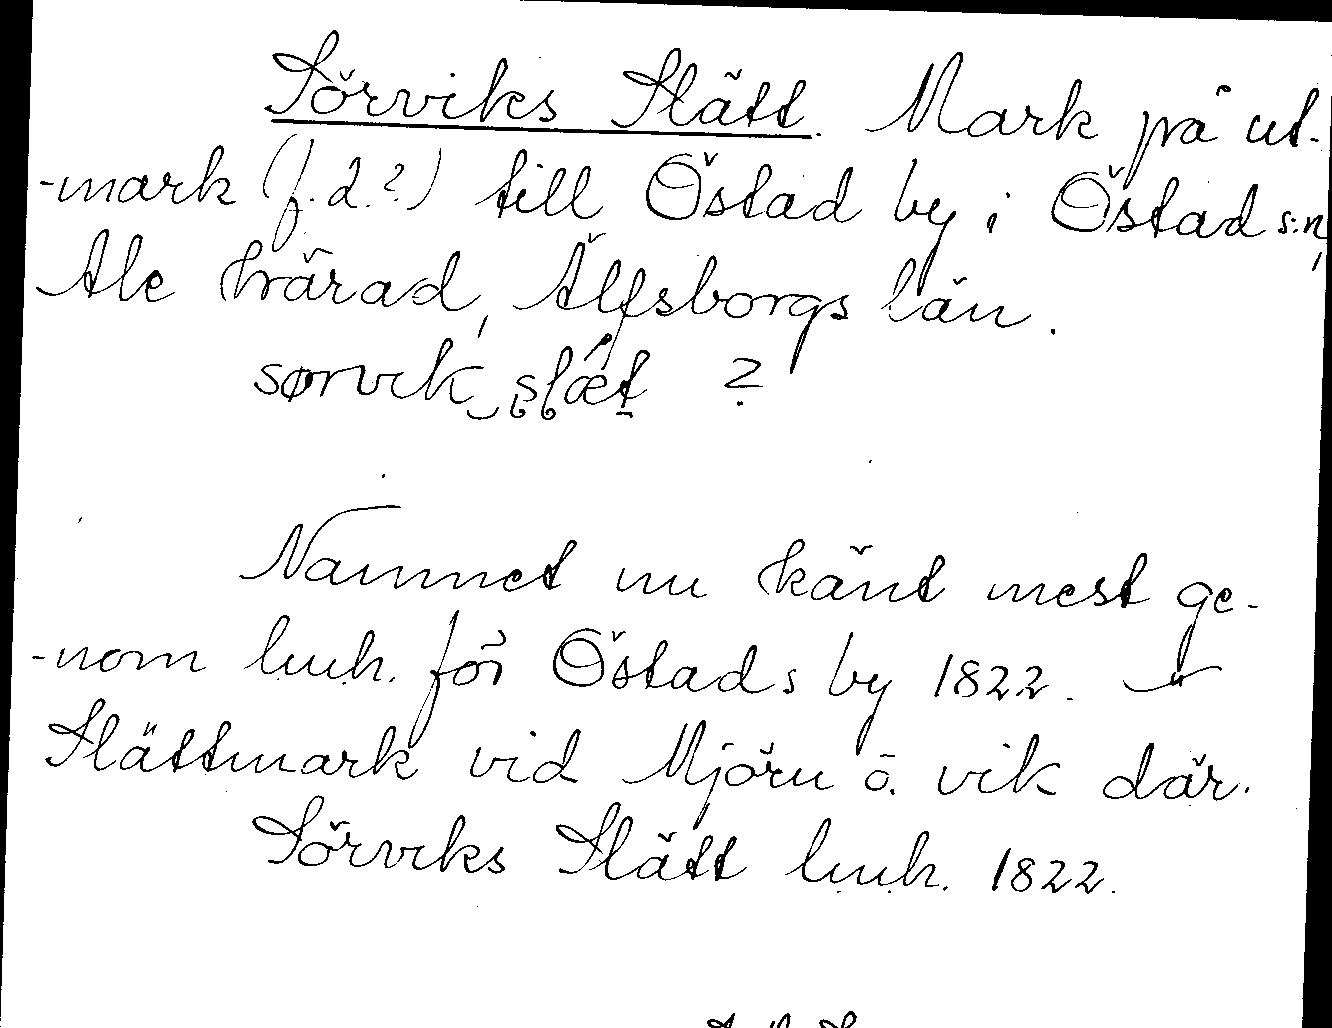 Sörviks Slätt. Mark på ut-
-mark (f.d.?) till Östad by i Östad s:n,
Ale härad, Älfsborgs län.
sørvik slæt ?
Namnet nu känt mest ge-
-nom luuh. för Östads by 1822.
Slättmark vid Mjörn ö. vik där.
Sörviks Slätt luuh. 1822.